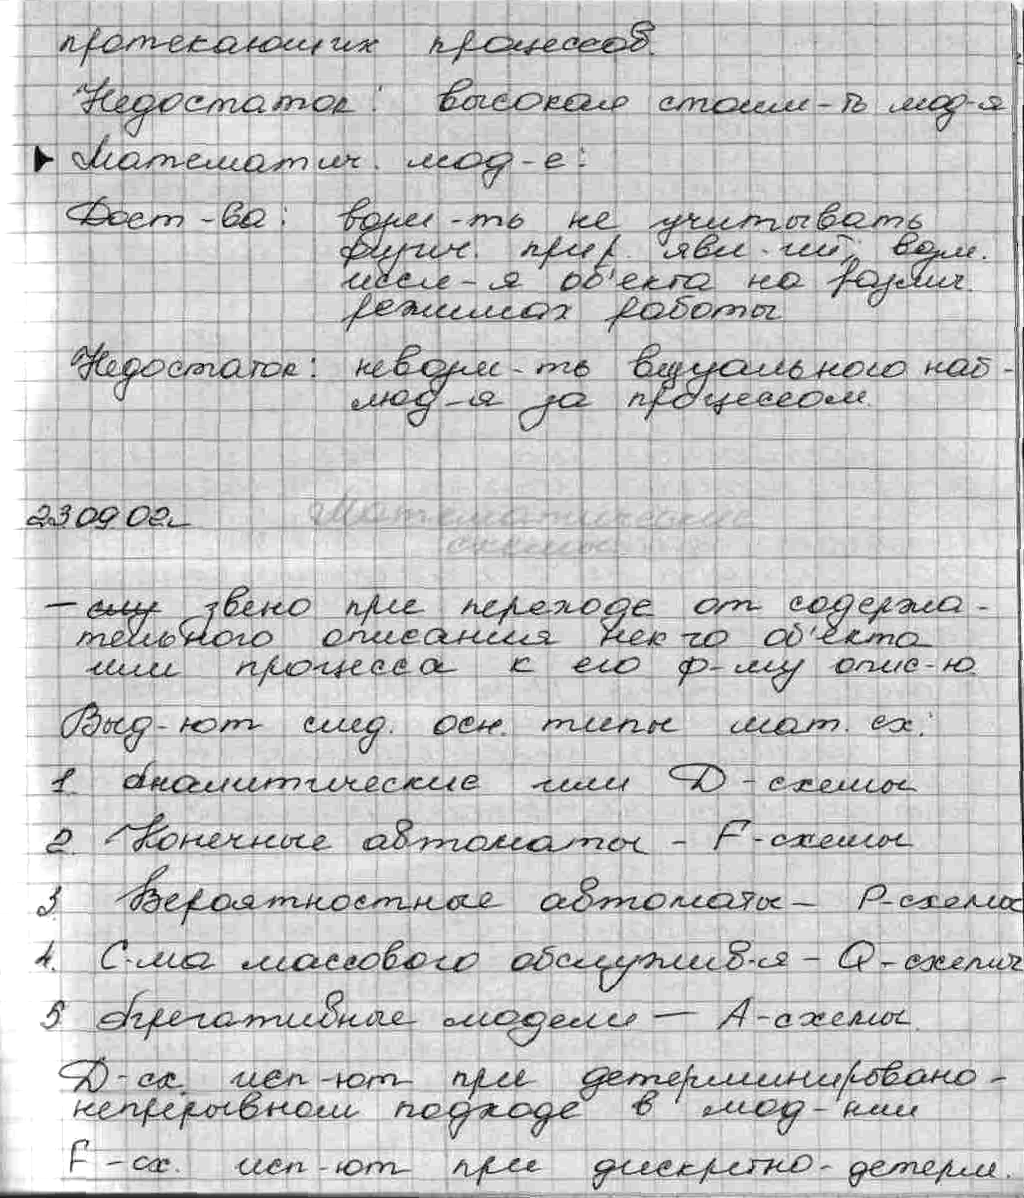 протекающих процессов.
Недостаток: высокая стоим-ть мод-я
Математич. мод-е:
Дост-ва: возм-ть не учитывать
физич. прир. явл-ий; возм.
иссл-я об'екта на различ.
режимах работы
Недостаток: невозм-ть визуального наб-
люд-я за процессом.
23 09 02г.
Математические
схемы
— звено при переходе от содержа-
тельного описания нек-го об'екта
или процесса к его ф-му опис-ю.
Выд-ют след. осн. типы мат. сх:
1. Аналитические или D-схемы
2. Конечные автоматы - F-схемы
3. Вероятностные автоматы - P-схемы
4. С-ма массового обслужив-я - Q-схемы
5. Агрегативные модели — A-схемы.
D-сх. исп-ют при детерминировано-
непрерывном подходе в мод-нии
F-сх. исп-ют при дискретно-детерм.